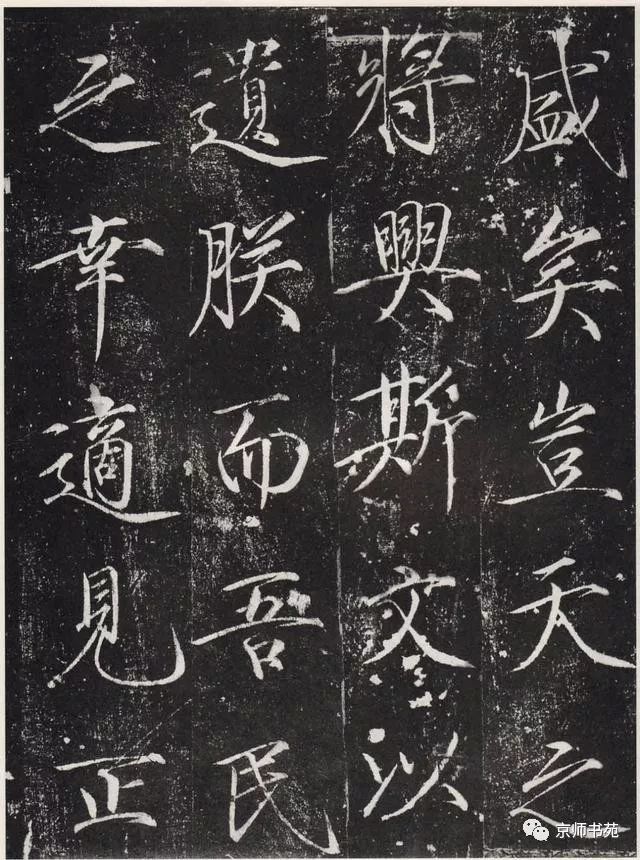 盛矣豈天之
將興斯文以
遺朕而吾民
之幸適見正
京师书苑